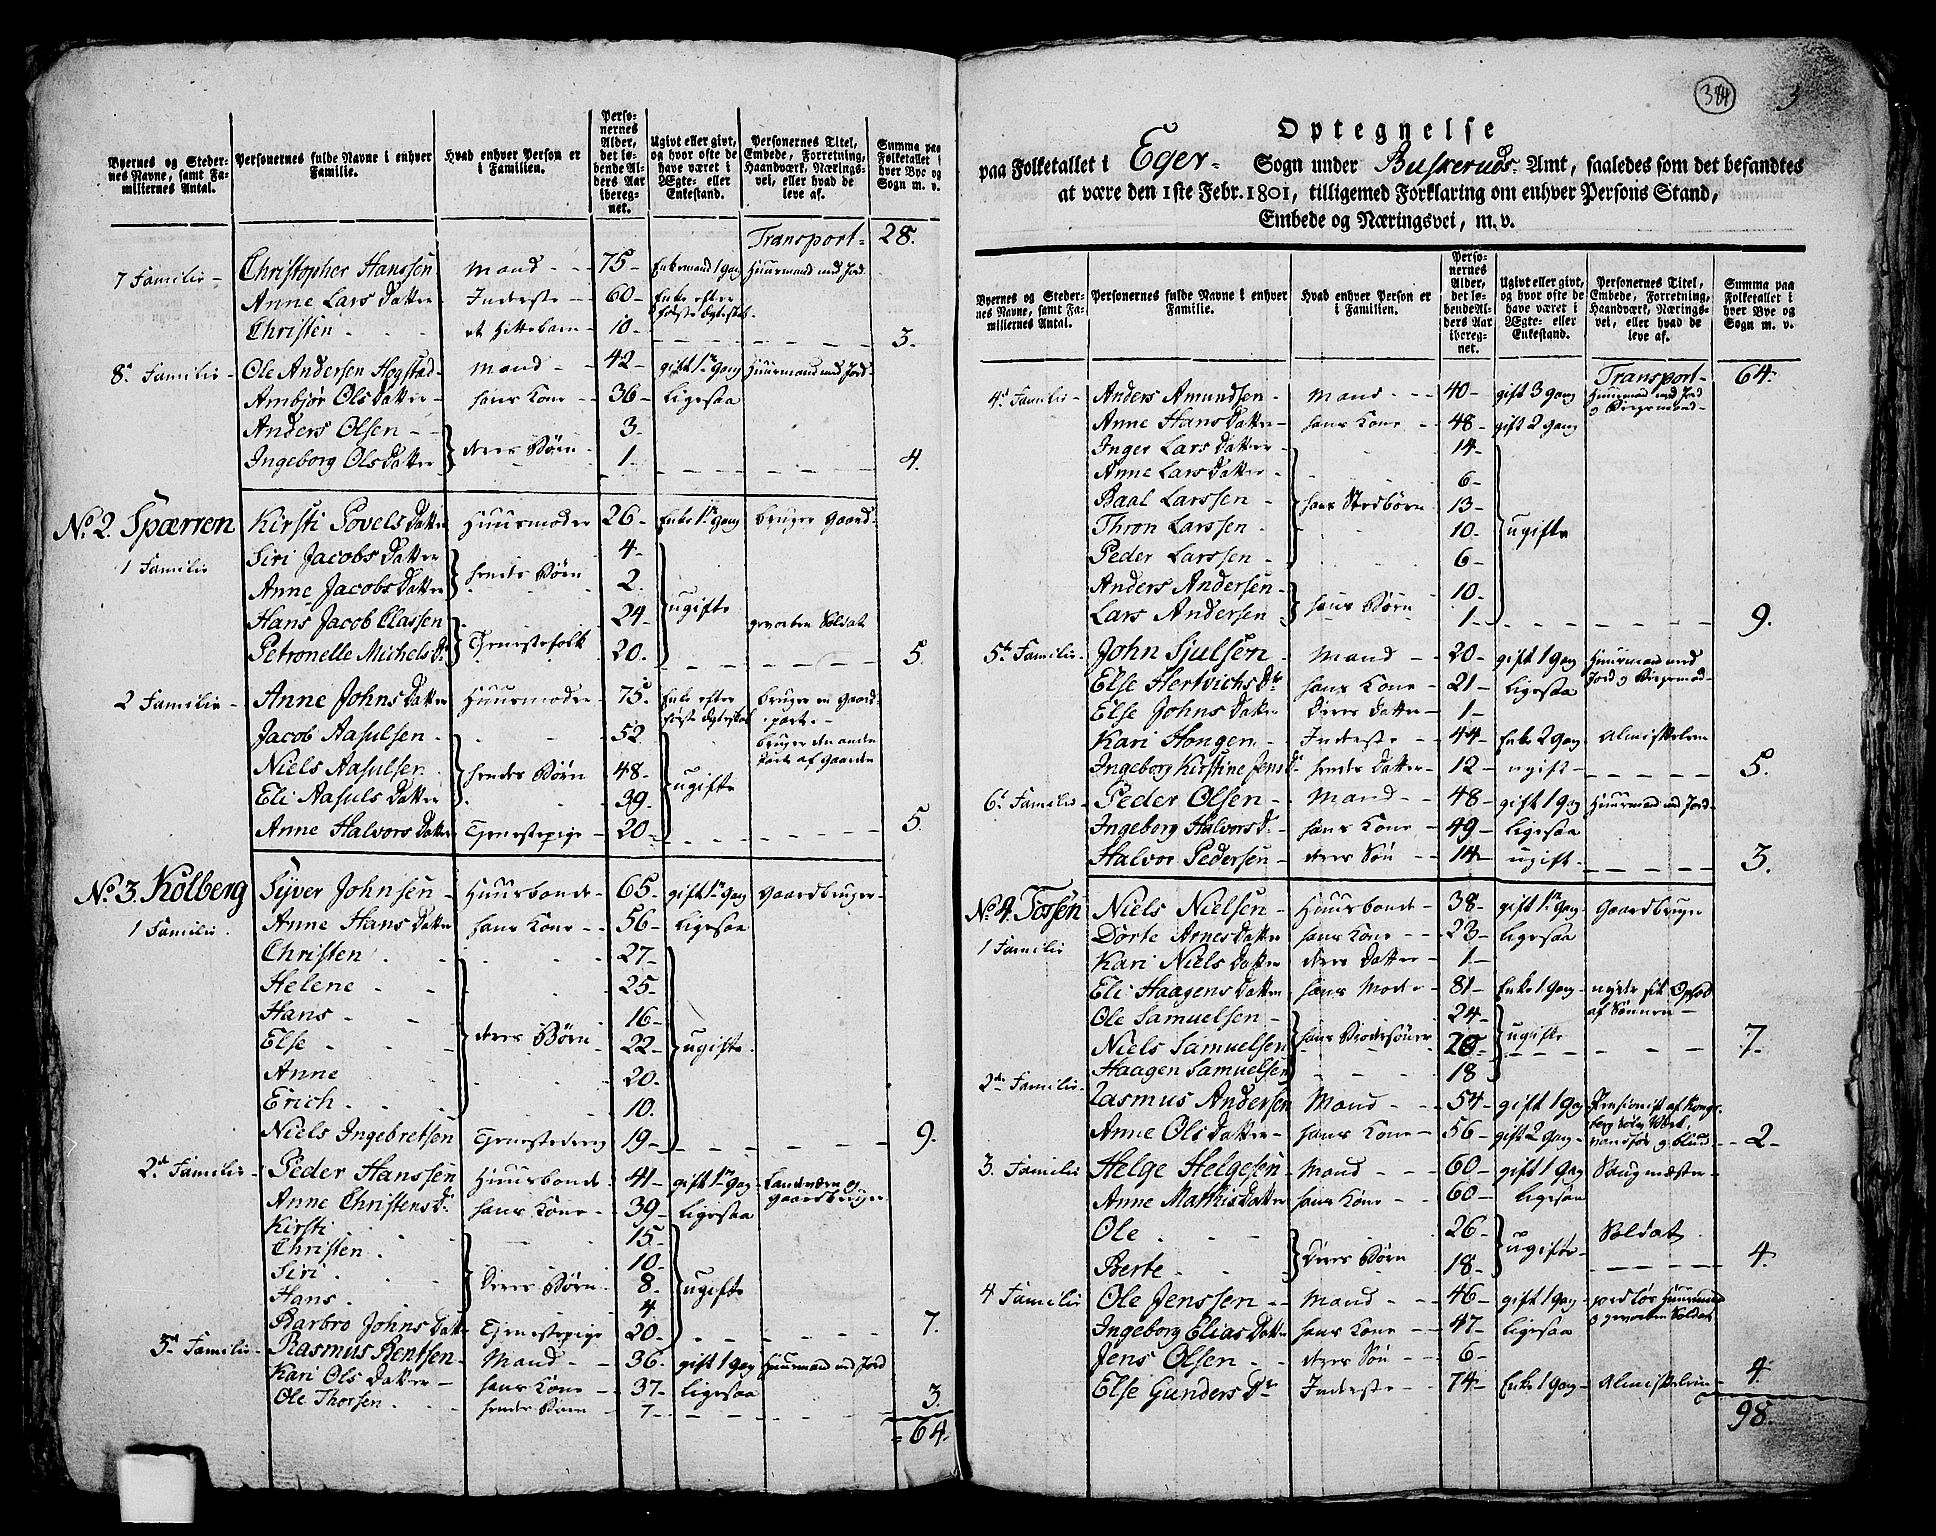 Byernes og Steder-
nes Navne, samt Fa-
miliernes Antal.
Personernes fulde Navne i enhver
Familie.
Hvad enhver Person er
i Familien.
Perso-
nernes
Alder,
det lø-
bende Al-
ders Aar
iberegnet.
Ugivt eller givt,
og hvor ofte de
have været i
Ægte- eller
Enkestand.
Personernes Titel,
Embede, Forretning,
Haandværk, Nærings-
vei, eller hvad de
leve af.
Summa paa
Folketallet i
hver Bye og
Sogn m. v.
Transport - 28.
7 Familie - Christopher Hanssen Mand - - 75 - Enkemand 1 Gang Huusmand med Jord
Anne Lars Datter Inderste - - 60 - Enke efter første Egteskab
Christen - et Hittebarn - 10 - 3.
8de Familie - Ole Andersen Hogstad - Mand - - 42 - gift 1te Gang Huusmand med Jord
Ambjør Ols Datter - hans Kone - 36 - ligesaa
Anders Olsen - - 3 -
Ingeborg Ols Datter } deres Børn - 1. 4.
No. 2. Spærren Kirsti Povels Datter Huusmoder 26 - Enke 1te Gang bruger Gaard -
1 Familie Siri Jacobs Datter 4 -
Anne Jacobs Datter } hendes Børn 2.
Hans Jacob Classen 24 - } ugifte gevorben Soldat
Petronelle Michels Dr } Tjenestefolk 20. 5.
2 Familie - Anne Johns Datter Huusmoder - 75 - Enke efter første Egteskab bruger en Gaard-
parte -
Jacob Aasulsen - 52. bruger den anden
Parte af Gaarden
Niels Aasulsen } hendes Børn 48 - } ugifte
Eli Aasuls Datter 39.
Anne Halvors Datter Tjenestepige - 20 - 5.
No. 3. Kolberg Syver Johnsen - Huusbonde - 65. gift 1te Gang Gaardbruger -
1 Familie. Anne Hans Datter hans Kone - - 56 - ligesaa
Christen 27 -
Helene 25 -
Hans 16 -
Else } deres Børn 22 - } ugifte
Anne 20 -
Erich 10.
Niels Ingebretsen Tjenestedreng 19 - 9.
2de Familie - Peder Hanssen Huusbonde 41 - gift 1te Gang Landværn og
Gaardbruger
Anne Christens Dr hans Kone - 39 - ligesaa
Kirsti 15 -
Christen 10 -
Siri } deres Børn - 8. } ugifte
Hans 4.
Barbro Johns Datter Tjenestepige 20 - 7.
3de Familie - Rasmus Bentsen - Mand - - 36 - gift 1 Gang Huusmand med Jord
Kari Ols Datter - hans Kone - 37 - ligesaa
Ole Thorsen hendes Barn 7 - 3.
= 64.
384
3
Optegnelse
paa Folketallet i Eger - Sogn under Buskeruds - Amt, saaledes som det befandtes
at være den 1ste Febr. 1801, tilligemed Forklaring om enhver Persons Stand,
Embede og Næringsvei, m. v.
Byernes og Steder-
nes Navne, samt Fa-
miliernes Antal.
Personernes fulde Navne i enhver
Familie.
Hvad enhver Person er
i Familien.
Perso-
nernes
Alder,
det lø-
bende Al-
ders Aar
iberegnet.
Ugivt eller givt,
og hvor ofte de
have været i
Ægte- eller
Enkestand.
Personernes Titel,
Embede, Forretning,
Haandværk, Nærings-
vei, eller hvad de
leve af.
Summa paa
Folketallet i
hver Bye og
Sogn m. v.
Transport - 64.
4de Familie - Anders Amundsen - Mand - - 40 - gift 3 Gang Huusmand med Jord
og Bergmand -
Anne Hans Datter - hans Kone - 48 - gift 2 Gang
Inger Lars Datter - 14 -
Anne Lars Datter - 6 -
Paal Larssen - } hans Stedbørn - 13 -
Thron Larssen - 10. } ugifte
Peder Larssen - 6 -
Anders Andersen - 10 -
Lars Andersen } hans Børn 1 - 9.
5te Familie - John Sjulsen Mand - - 20 - gift 1 Gang Huusmand med
Jord og Bergmand -
Else Hertvichs Dtr hans Kone - 21 - ligesaa
Else Johns Datter deres Datter - 1 -
Kari Hongen - Inderste - 44 - Enke 2 Gang Almisselem
Ingeborg Kirstine Jens Dr hendes Datter - 12 - ugift - 5.
6te Familie - Peder Olsen - Mand - - 48 - gift 1 Gang Huusmand med Jord -
Ingeborg Halvors Dr hans Kone - 49 - ligesaa
Halvor Pedersen - deres Søn - 14 - ugift - 3.
No. 4. Tossen Niels Nielsen - Huusbonde - 38 - gift 1te Gang Gaardbruger
1 Familie Dorte Arnes Datter hans Kone - - 23 - ligesaa
Kari Niels Datter deres Datter - 1 -
Eli Haagens Datter hans Moder - 81 - Enke 1 Gang nyder sit Ophold
af Sønnen -
Ole Samuelsen - 24 -
Niels Samuelsen } hans Brodersønner 20 - } ugifte 7.
Haagen Samuelsen 18
2de Familie - Rasmus Andersen Mand - - 54 - gift 1 Gang Pensionist af Kongs-
berg Sølv Værk,
Anne Ols Datter - hans Kone - 56 - gift 2 Gang - vanfør og blind - - 2 -
3. Familie Helge Helgesen Mand - - 60 - gift 1 Gang Saugmester -
Anne Mathis Datter hans Kone - 60 - ligesaa
Ole 26 - Soldat
Berte } deres Børn 18 - } ugifte 4.
4 Familie Ole Jenssen - - Mand - - 46 - gift 1 Gang - jordløs Huusmand
og gevorben Soldat
Ingeborg Elias Datter hans Kone - 47 - ligesaa
Jens Olsen - deres Søn - - 6 -
Else Gunders Dtr Inderste - - 74 - Enke 1 Gang - Almisselem - 4.
98.